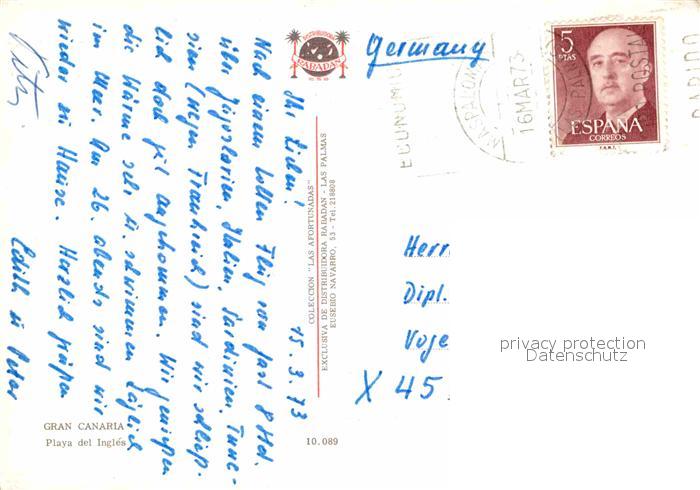 15.3.73
Ihr Lieben!
Nach einem tollen Flug von fast 8 Std.
über Jugoslavien, Italien, Sardinien, Tune-
sien (wegen Frankreich) sind wir schließ-
lich doch gut angekommen. Wir genießen
die Wärme sehr u. schwimmen täglich
im Meer. Am 26. abends sind wir
wieder zu Hause. Herzlich grüßen
Edith u Peter
DISTRIBUIDORA
RABADAN
COLECCION "LAS AFORTUNADAS"
EXCLUSIVA DE DISTRIBUIDORA RABADAN - LAS PALMAS
EUSEBIO NAVARRO, 53 - Tel. 218808
GRAN CANARIA
Playa del Inglés
10.089
Germany
16 MAR 73
5
PTAS
ESPAÑA
CORREOS
F.N.M.T.
Herr
Dipl.
Voge
X 45
privacy protection
Datenschutz